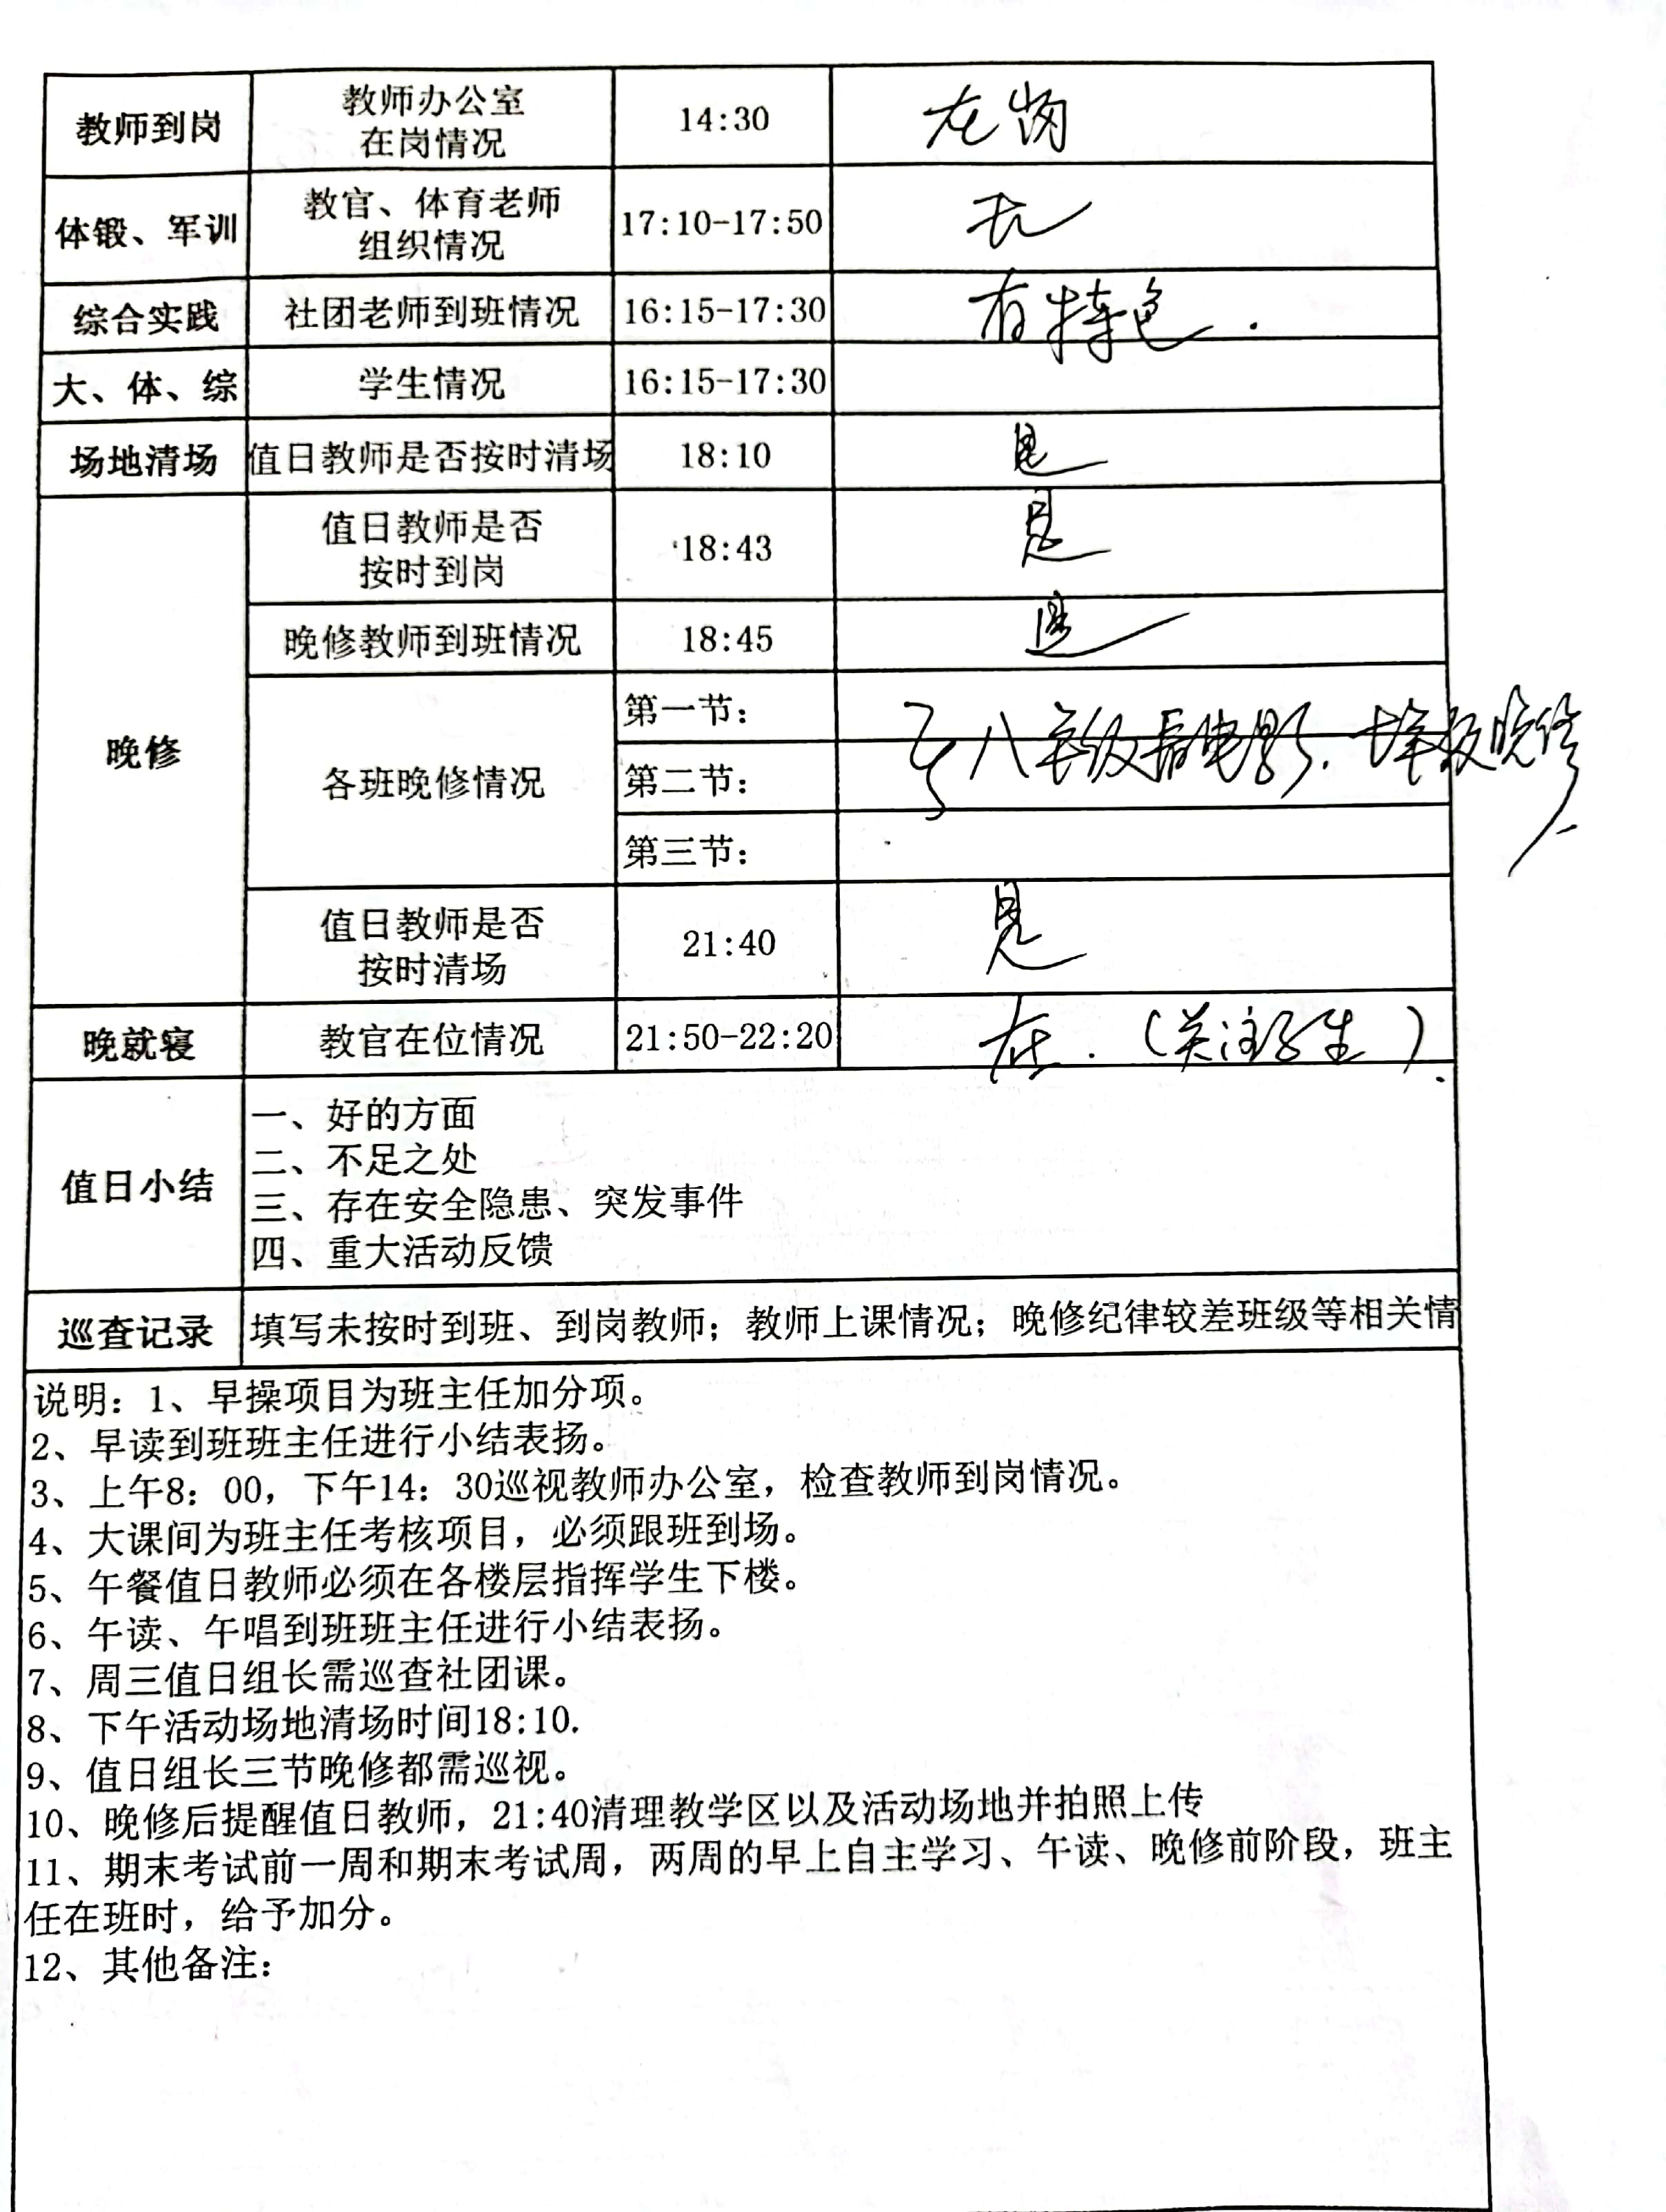 教师到岗 教师办公室在岗情况 14:30 在岗
体锻、军训 教官、体育老师组织情况 17:10-17:50
综合实践 社团老师到班情况 16:15-17:30 有特色.
大、体、综 学生情况 16:15-17:30
场地清场 值日教师是否按时清场 18:10 是
晚修 值日教师是否按时到岗 18:43 是
晚修教师到班情况 18:45 是
各班晚修情况 第一节:
八年级看电影. 七年级晚修
第二节:
第三节:
值日教师是否按时清场 21:40 是
晚就寝 教官在位情况 21:50-22:20 在.(关注学生).
值日小结
一、好的方面
二、不足之处
三、存在安全隐患、突发事件
四、重大活动反馈
巡查记录 填写未按时到班、到岗教师；教师上课情况；晚修纪律较差班级等相关情
说明：1、早操项目为班主任加分项。
2、早读到班班主任进行小结表扬。
3、上午8：00，下午14：30巡视教师办公室，检查教师到岗情况。
4、大课间为班主任考核项目，必须跟班到场。
5、午餐值日教师必须在各楼层指挥学生下楼。
6、午读、午唱到班班主任进行小结表扬。
7、周三值日组长需巡查社团课。
8、下午活动场地清场时间18:10.
9、值日组长三节晚修都需巡视。
10、晚修后提醒值日教师，21:40清理教学区以及活动场地并拍照上传
11、期末考试前一周和期末考试周，两周的早上自主学习、午读、晚修前阶段，班主
任在班时，给予加分。
12、其他备注：